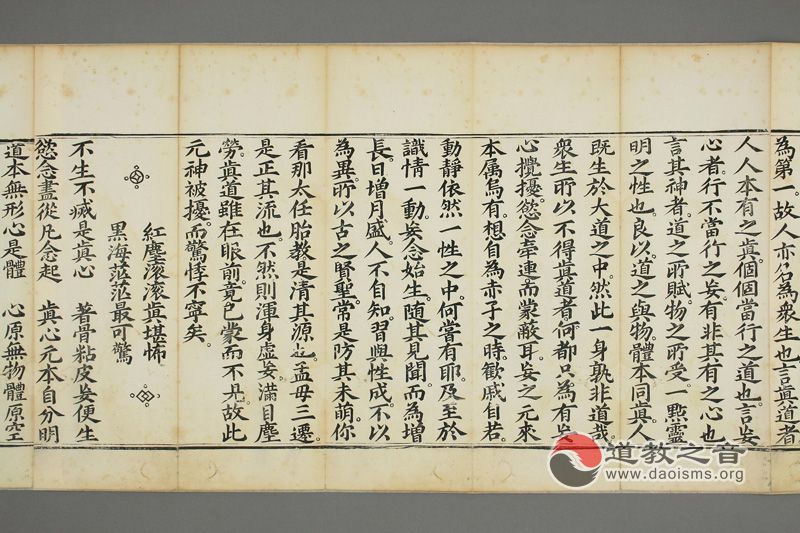 為第一。故人亦名為衆生也言眞道者
人人本有之眞。個個當行之道也。言妄
心者。行不當行之妄。有非其有之心也
言其神者。道之所賦物之所受。一㸃靈
明之性也。良以道之與物。體本同眞。人
既生於大道之中。然此一身孰非道哉。
衆生所以不得眞道者何。都只為有妄
心攪擾。慾念牽連而蒙蔽耳。妄之元來
本属烏有。想自為赤子之時。歡戚自若。
動靜依然一性之中。何嘗有耶。及至於
識情一動。妄念始生。隨其見聞。而為增
長。日增月盛。人不自知。習與性成。不以
為異。所以古之賢聖。常是防其未萌。你
看那太任胎教。是清其源也。孟母三遷。
是正其流也。不然則渾身虛妄。滿目塵
勞。眞道雖在眼前。竟已蒙而不見。故此
元神被擾。而驚悸不寧矣。
紅塵滾滾眞堪怖
黑海茫茫最可驚
不生不滅是眞心 著骨粘皮妄便生
慾念盡從凡念起 眞心元本自分明
道本無形心是體 心原無物體原空
道教之音
www.daoisms.org